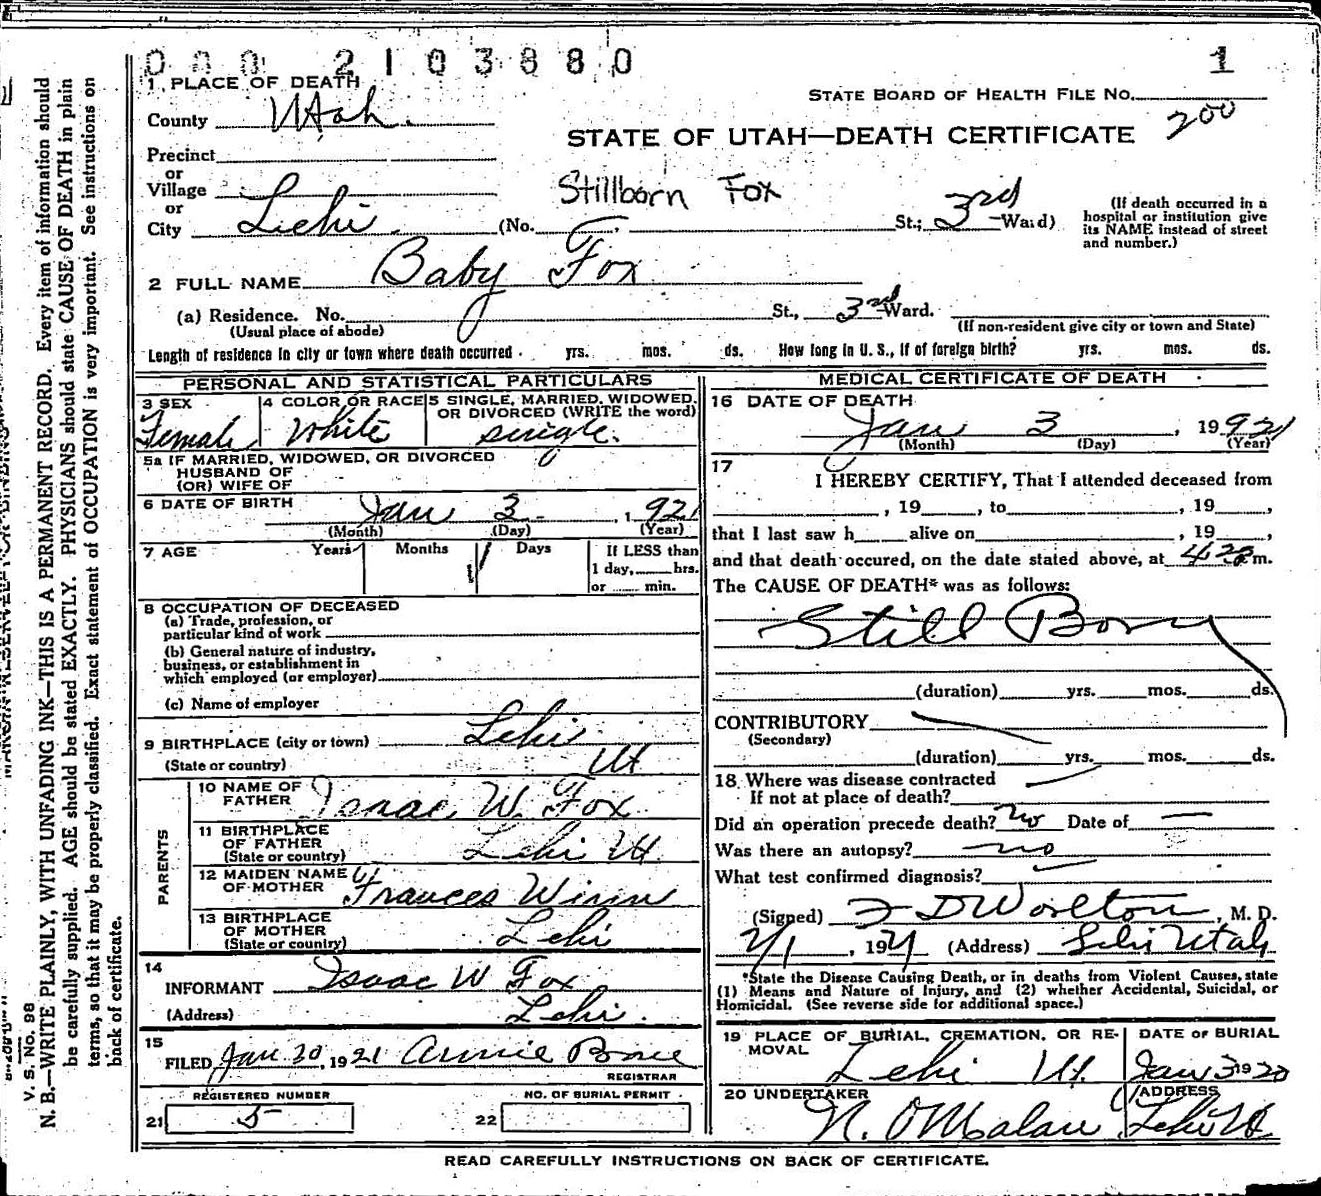 000 2103880 1
1 PLACE OF DEATH
STATE BOARD OF HEALTH FILE NO. 200
County Utah.
STATE OF UTAH—DEATH CERTIFICATE
Precinct
or
Village
Stillborn Fox
or
City Lehi. (No. St.; 3rd Ward)
(If death occurred in a
hospital or institution give
its NAME instead of street
and number.)
2 FULL NAME Baby Fox
(a) Residence. No. St., 3rd Ward.
(Usual place of abode) (If non-resident give city or town and State)
Length of residence in city or town where death occurred yrs. mos. ds. How long in U. S., if of foreign birth? yrs. mos. ds.
PERSONAL AND STATISTICAL PARTICULARS
3 SEX 4 COLOR OR RACE 5 SINGLE, MARRIED, WIDOWED,
OR DIVORCED (WRITE the word)
Female White single.
5a IF MARRIED, WIDOWED, OR DIVORCED
HUSBAND OF
(OR) WIFE OF
6 DATE OF BIRTH Jan 3 , 1921
(Month) (Day) (Year)
7 AGE Years Months Days If LESS than
1 day, hrs.
or min.
8 OCCUPATION OF DECEASED
(a) Trade, profession, or
particular kind of work
(b) General nature of industry,
business, or establishment in
which employed (or employer)
(c) Name of employer
9 BIRTHPLACE (city or town) Lehi
(State or country) Ut
PARENTS
10 NAME OF
FATHER Isaac W. Fox
11 BIRTHPLACE
OF FATHER
(State or country) Lehi Ut
12 MAIDEN NAME
OF MOTHER Frances Winn
13 BIRTHPLACE
OF MOTHER
(State or country) Lehi
14
INFORMANT Isaac W Fox
(Address) Lehi.
15
FILED Jan 20, 1921 Annie Bone
REGISTRAR
REGISTERED NUMBER NO. OF BURIAL PERMIT
21 5 22
MEDICAL CERTIFICATE OF DEATH
16 DATE OF DEATH
Jan 3 , 19921
(Month) (Day) (Year)
17
I HEREBY CERTIFY, That I attended deceased from
, 19 , to , 19 ,
that I last saw h alive on , 19 ,
and that death occured, on the date stated above, at m.
The CAUSE OF DEATH* was as follows:
Still Born
(duration) yrs. mos. ds.
CONTRIBUTORY
(Secondary)
(duration) yrs. mos. ds.
18 Where was disease contracted
If not at place of death?
Did an operation precede death? No Date of —
Was there an autopsy? no
What test confirmed diagnosis?
(Signed) F D Worlton, M. D.
, 1921 (Address) Lehi Utah
*State the Disease Causing Death, or in deaths from Violent Causes, state
(1) Means and Nature of Injury, and (2) whether Accidental, Suicidal, or
Homicidal. (See reverse side for additional space.)
19 PLACE OF BURIAL, CREMATION, OR RE-
MOVAL Lehi Ut.
DATE OF BURIAL
Jan 3 1920
20 UNDERTAKER
N. O Malan
ADDRESS
Lehi Ut
READ CAREFULLY INSTRUCTIONS ON BACK OF CERTIFICATE.
V. S. No. 98
N. B.—WRITE PLAINLY, WITH UNFADING INK—THIS IS A PERMANENT RECORD. Every item of information should
be carefully supplied. AGE should be stated EXACTLY. PHYSICIANS should state CAUSE OF DEATH in plain
terms, so that it may be properly classified. Exact statement of OCCUPATION is very important. See instructions on
back of certificate.